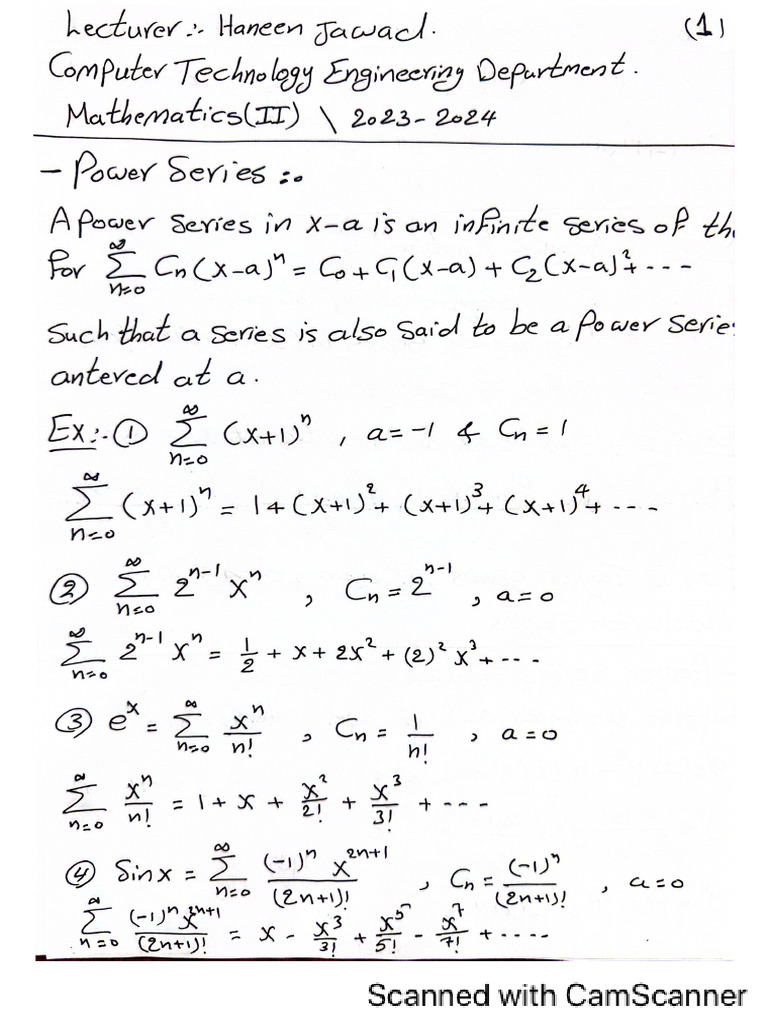 Lecturer:- Haneen Jawad. (1)
Computer Technology Engineering Department.
Mathematics(II) \ 2023-2024
- Power Series :.
A power series in x-a is an infinite series of th
for ∑_{n=0}^{∞} Cn(x-a)^n = C₀ + C₁(x-a) + C₂(x-a)² + ---
Such that a series is also said to be a power serie
antered at a.
Ex:- ① ∑_{n=0}^{∞} (x+1)^n , a = -1 & Cn = 1
∑_{n=0}^{∞} (x+1)^n = 1 + (x+1)² + (x+1)³ + (x+1)⁴ + ---
② ∑_{n=0}^{∞} 2^{n-1} x^n , Cn = 2^{n-1} , a = 0
∑_{n=0}^{∞} 2^{n-1} x^n = 1/2 + x + 2x² + (2)² x³ + ---
③ e^x = ∑_{n=0}^{∞} x^n/n! , Cn = 1/n! , a = 0
∑_{n=0}^{∞} x^n/n! = 1 + x + x²/2! + x³/3! + ---
④ Sin x = ∑_{n=0}^{∞} (-1)^n x^{2n+1}/(2n+1)! , Cn = (-1)^n/(2n+1)! , a = 0
∑_{n=0}^{∞} (-1)^n x^{2n+1}/(2n+1)! = x - x³/3! + x⁵/5! - x⁷/7! + ----
Scanned with CamScanner